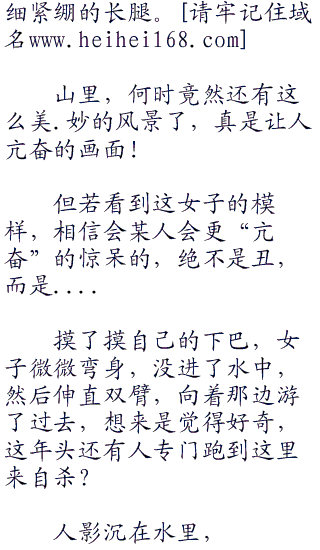 细紧绷的长腿。[请牢记住域
名www.heihei168.com]
山里，何时竟然还有这
么美.妙的风景了，真是让人
亢奋的画面！
但若看到这女子的模
样，相信会某人会更“亢
奋”的惊呆的，绝不是丑，
而是....
摸了摸自己的下巴，女
子微微弯身，没进了水中，
然后伸直双臂，向着那边游
了过去，想来是觉得好奇，
这年头还有人专门跑到这里
来自杀？
人影沉在水里，